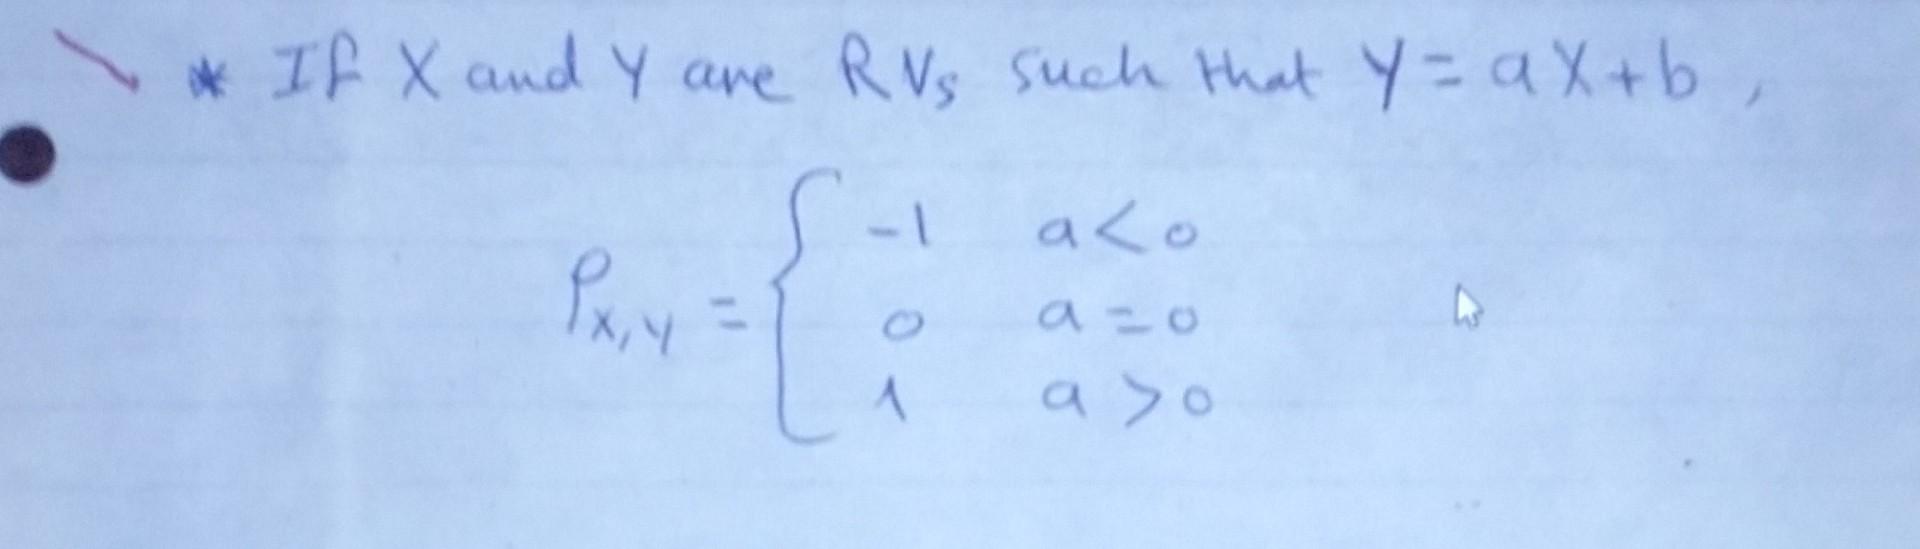 * If X and Y are RVs such that Y = aX + b ,
ρX,Y = { -1 a < 0
0 a = 0
1 a > 0